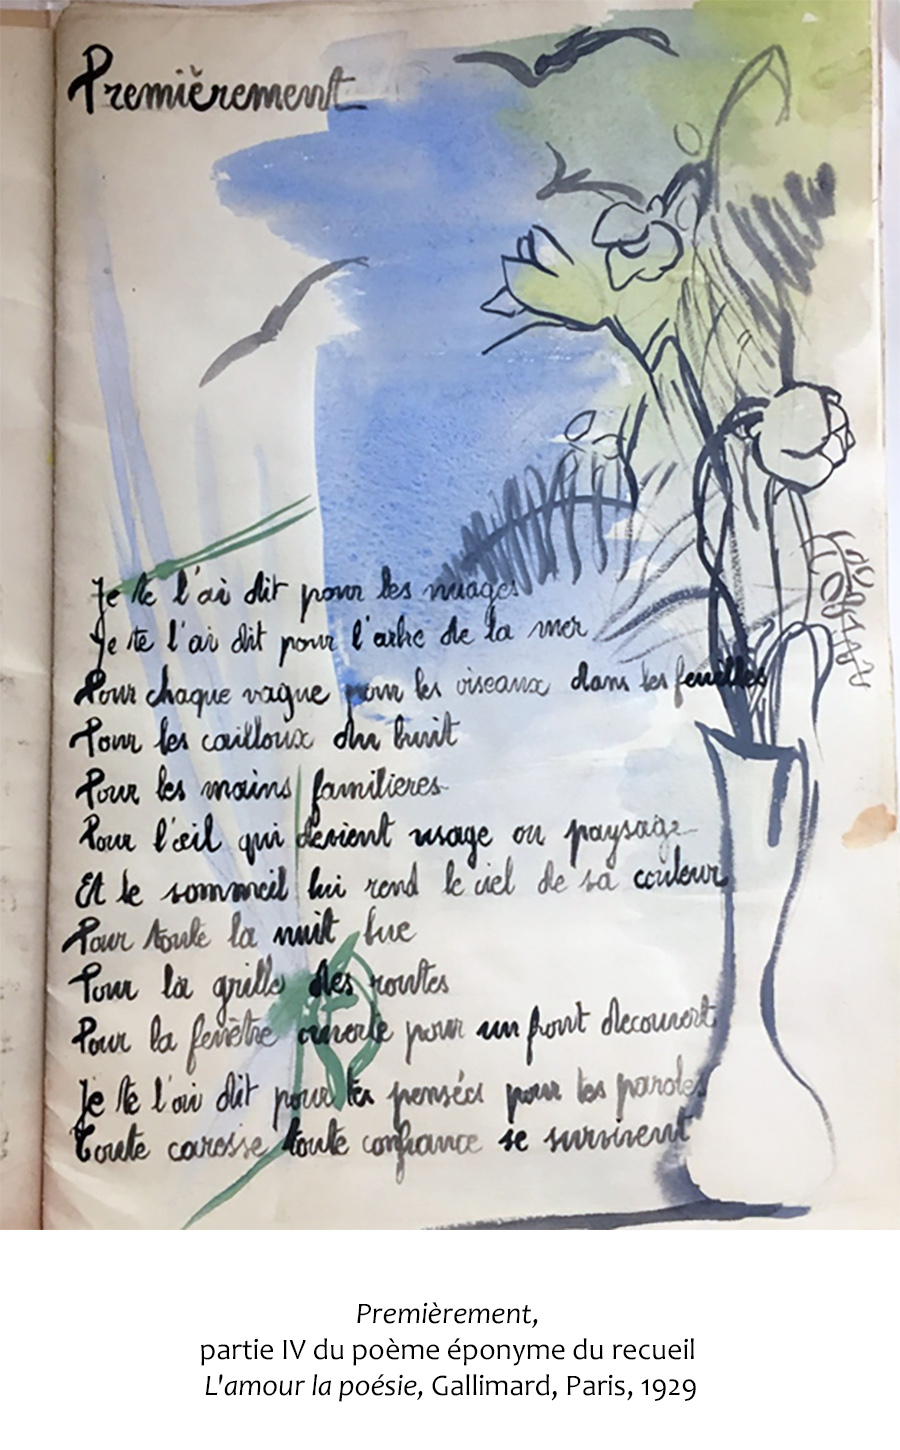 Premièrement
Je te l'ai dit pour les nuages
Je te l'ai dit pour l'arbre de la mer
Pour chaque vague pour les oiseaux dans les feuilles
Pour les cailloux du bruit
Pour les mains familieres
Pour l'œil qui devient visage ou paysage
Et le sommeil lui rend le ciel de sa couleur
Pour toute la nuit bue
Pour la grille des routes
Pour la fenêtre ouverte pour un front decouvert
Je te l'ai dit pour tes pensées pour tes paroles
Toute caresse toute confiance se survivent
Premièrement,
partie IV du poème éponyme du recueil
L'amour la poésie, Gallimard, Paris, 1929